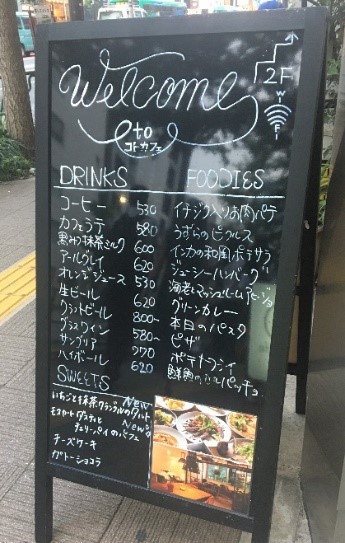 Welcome
to
コトカフェ
2F
WiFi
DRINKS
コーヒー 530
カフェラテ 580
黒みつ抹茶ミルク 600
アールグレイ 620
オレンジジュース 530
生ビール 620
クラフトビール 800~
グラスワイン 580~
サングリア 770
ハイボール 620
FOODIES
イチジク入りお肉パテ
うずらのピクルス
インカの和風ポテサラ
ジューシーハンバーグ
海老とマッシュルームアヒージョ
グリーンカレー
本日のパスタ
ピザ
ポテトフライ
鮮魚のカルパッチョ
SWEETS
いちごと抹茶クランブルのタルト New
チェリーパイのパフェ New
チーズケーキ
ガトーショコラ